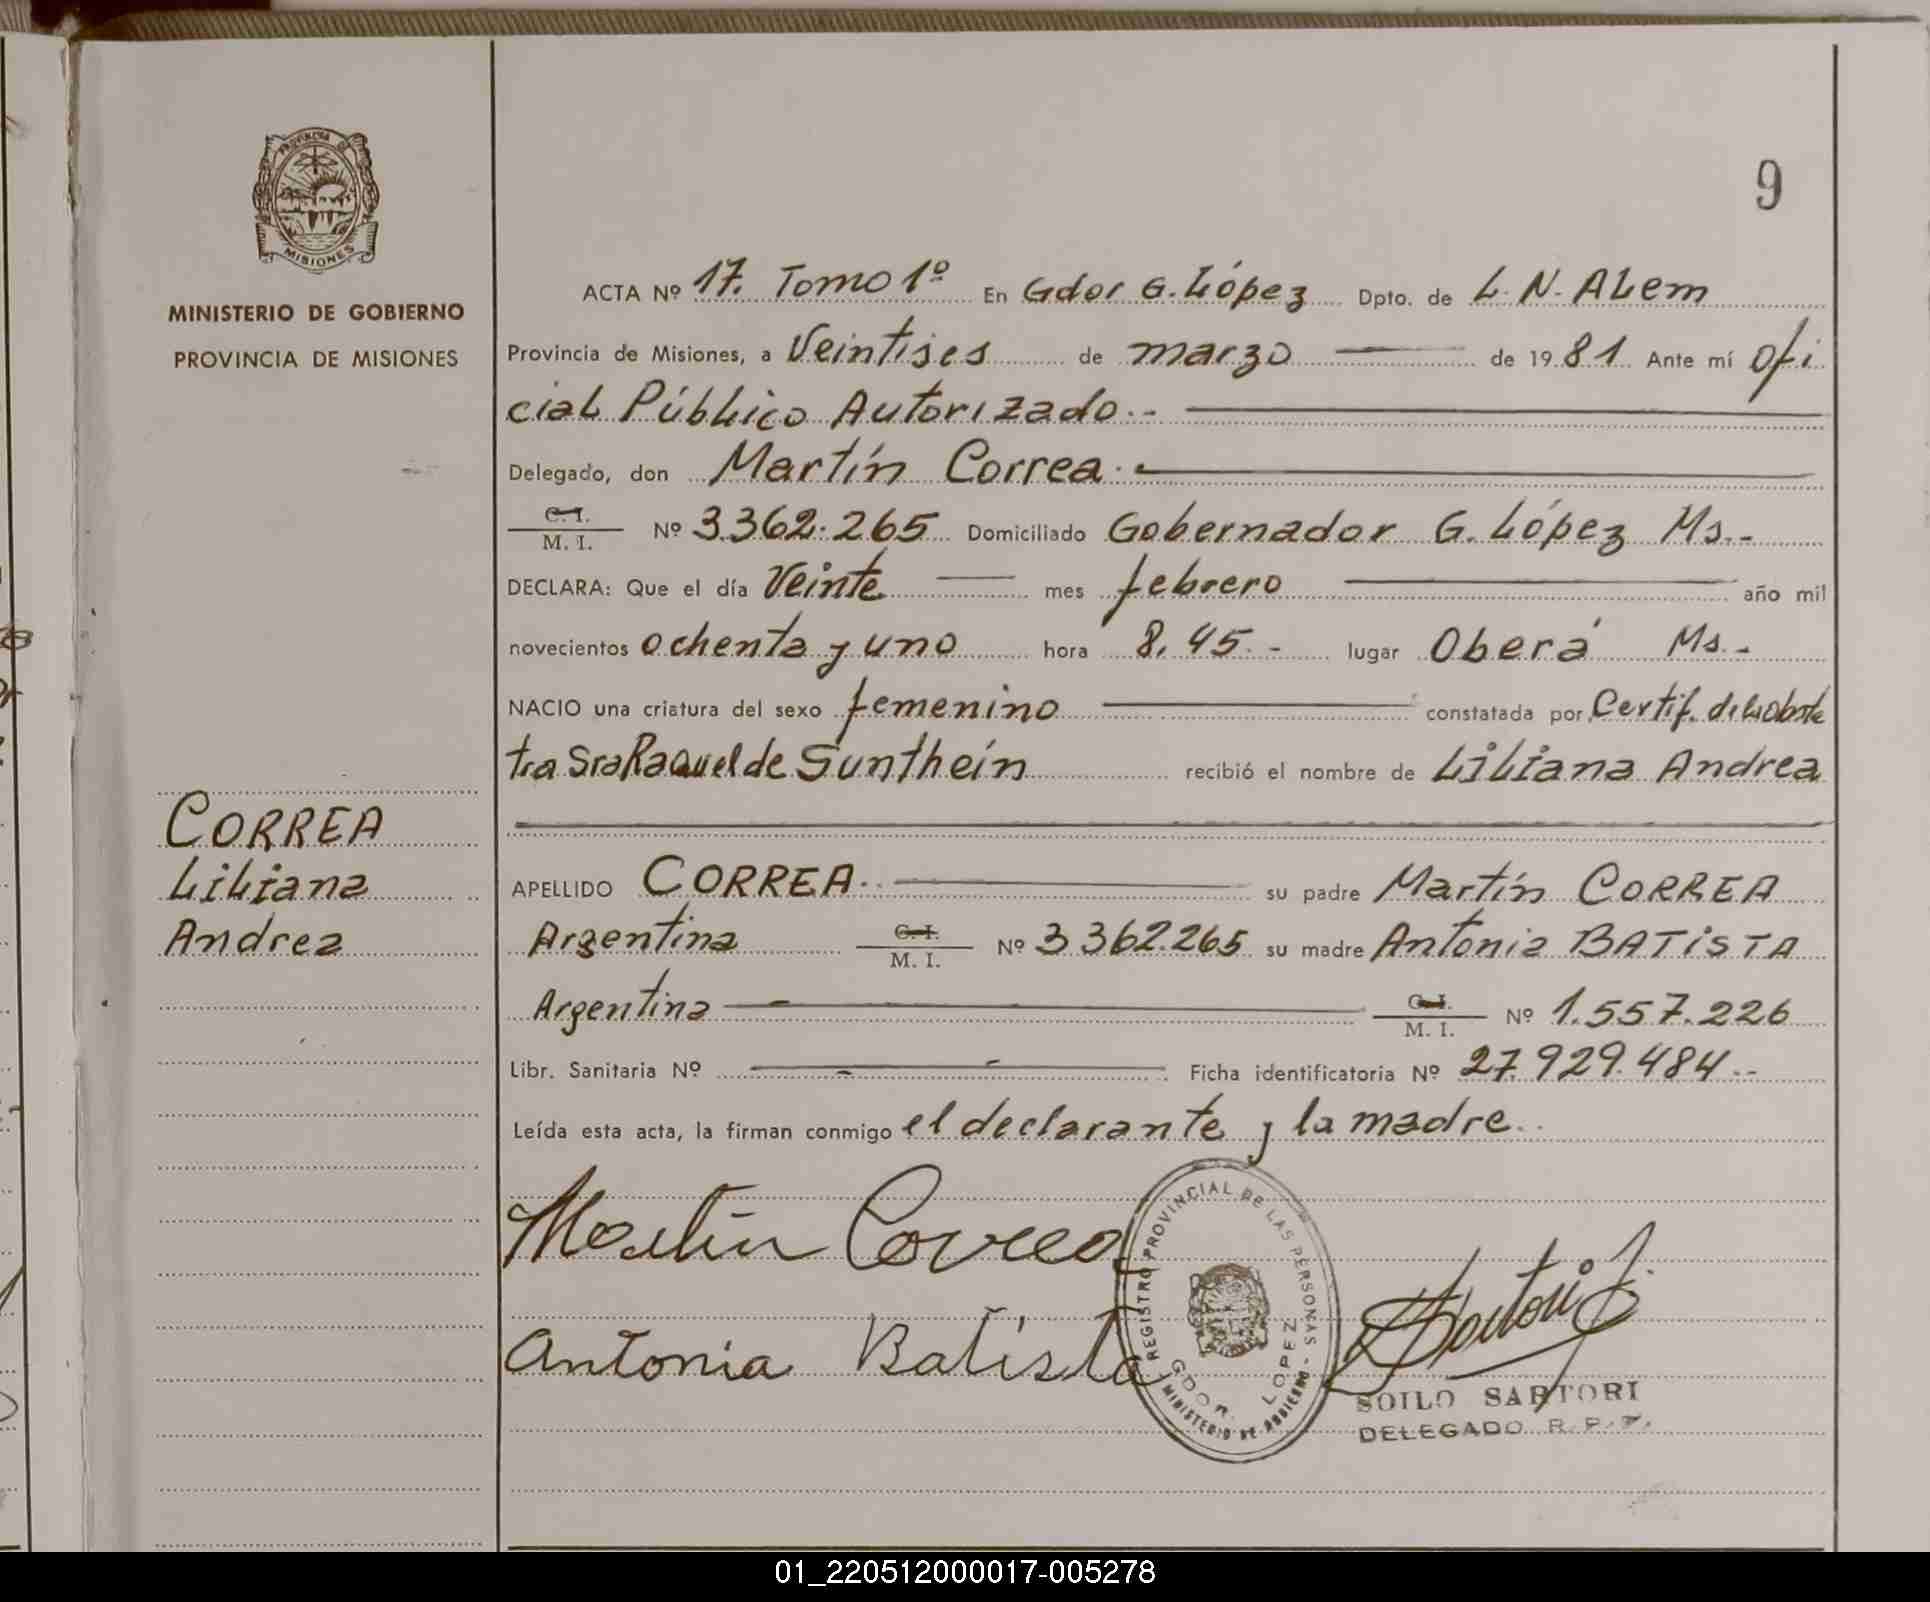 PROVINCIA DE
MISIONES
MINISTERIO DE GOBIERNO
PROVINCIA DE MISIONES
CORREA
Liliana
Andrea
9
ACTA Nº 17. Tomo 1º En Gdor G. López Dpto. de L. N. Alem
Provincia de Misiones, a Veintises de marzo de 1981 Ante mí ofi
cial Público Autorizado.-
Delegado, don Martín Correa.
C. I.
M. I. Nº 3.362.265 Domiciliado Gobernador G. López Ms.-
DECLARA: Que el día Veinte mes febrero año mil
novecientos ochenta y uno hora 8,45.- lugar Oberá Ms.-
NACIO una criatura del sexo femenino constatada por Certif. de la obste
tra Sra Raquel de Sunthein recibió el nombre de Liliana Andrea
APELLIDO CORREA. su padre Martín CORREA
Argentina C. I. M. I. Nº 3.362.265 su madre Antonia BATISTA
Argentina C. I. M. I. Nº 1.557.226
Libr. Sanitaria Nº Ficha identificatoria Nº 27.929.484.-
Leída esta acta, la firman conmigo el declarante y la madre.
Martín Correa
Antonia Batista
REGISTRO PROVINCIAL DE LAS PERSONAS - MINISTERIO DE GOBIERNO -
GDOR. LOPEZ
Sartori
SOILO SARTORI
DELEGADO R. P. P.
01_220512000017-005278